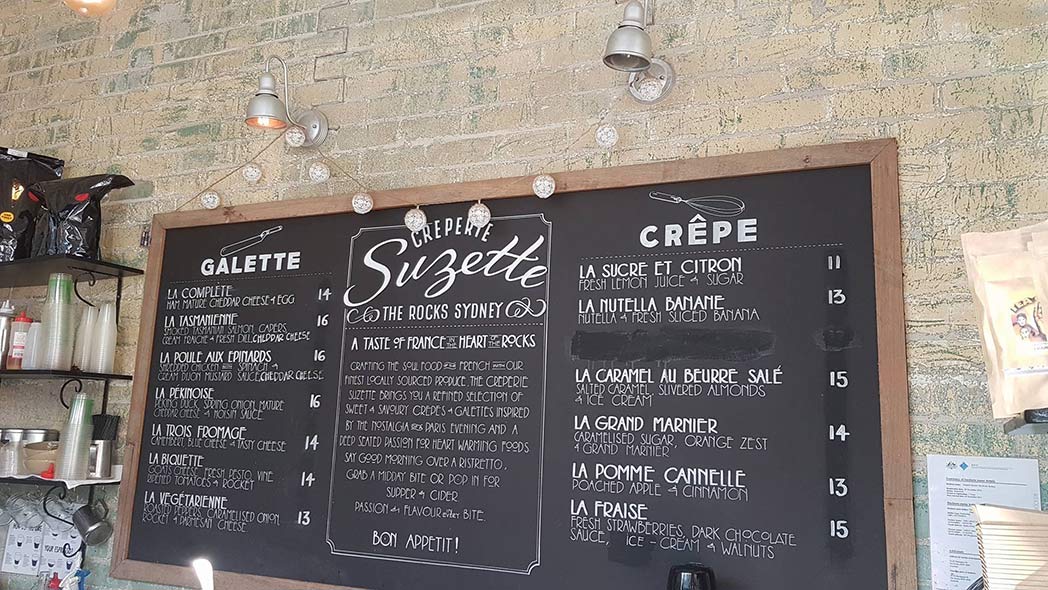 GALETTE
LA COMPLÈTE 14
HAM, MATURE CHEDDAR CHEESE & EGG
LA TASMANIENNE 16
SMOKED TASMANIAN SALMON, CAPERS,
CREAM FRAICHE & FRESH DILL, CHEDDAR CHEESE
LA POULE AUX EPINARDS 16
SHREDDED CHICKEN WITH SPINACH &
CREAM DIJON MUSTARD SAUCE, CHEDDAR CHEESE
LA PÉKINOISE 16
PEKING DUCK, SPRING ONION, MATURE
CHEDDAR CHEESE & HOISIN SAUCE
LA TROIS FROMAGE 14
CAMEMBERT, BLUE CHEESE & TASTY CHEESE
LA BIQUETTE 14
GOATS CHEESE, FRESH PESTO, VINE
RIPENED TOMATOES & ROCKET
LA VÉGÉTARIENNE 13
ROASTED PEPPERS, CARAMELISED ONION,
ROCKET & PARMESAN CHEESE
CREPERIE
Suzette
THE ROCKS SYDNEY
A TASTE OF FRANCE IN THE HEART OF THE ROCKS
CRAFTING THE SOUL FOOD OF THE FRENCH WITH OUR
FINEST LOCALLY SOURCED PRODUCE, THE CREPERIE
SUZETTE BRINGS YOU A REFINED SELECTION OF
SWEET & SAVOURY CREPES & GALETTES INSPIRED
BY THE NOSTALGIA OF A PARIS EVENING AND A
DEEP SEATED PASSION FOR HEART WARMING FOODS.
SAY GOOD MORNING OVER A RISTRETTO,
GRAB A MIDDAY BITE OR POP IN FOR
SUPPER & CIDER.
PASSION & FLAVOUR EVERY BITE.
BON APPETIT!
CRÊPE
LA SUCRE ET CITRON 11
FRESH LEMON JUICE & SUGAR
LA NUTELLA BANANE 13
NUTELLA & FRESH SLICED BANANA
LA CARAMEL AU BEURRE SALÉ 15
SALTED CARAMEL, SLIVERED ALMONDS
& ICE CREAM
LA GRAND MARNIER 14
CARAMELISED SUGAR, ORANGE ZEST
& GRAND MARNIER
LA POMME CANNELLE 13
POACHED APPLE & CINNAMON
LA FRAISE 15
FRESH STRAWBERRIES, DARK CHOCOLATE
SAUCE, ICE-CREAM & WALNUTS